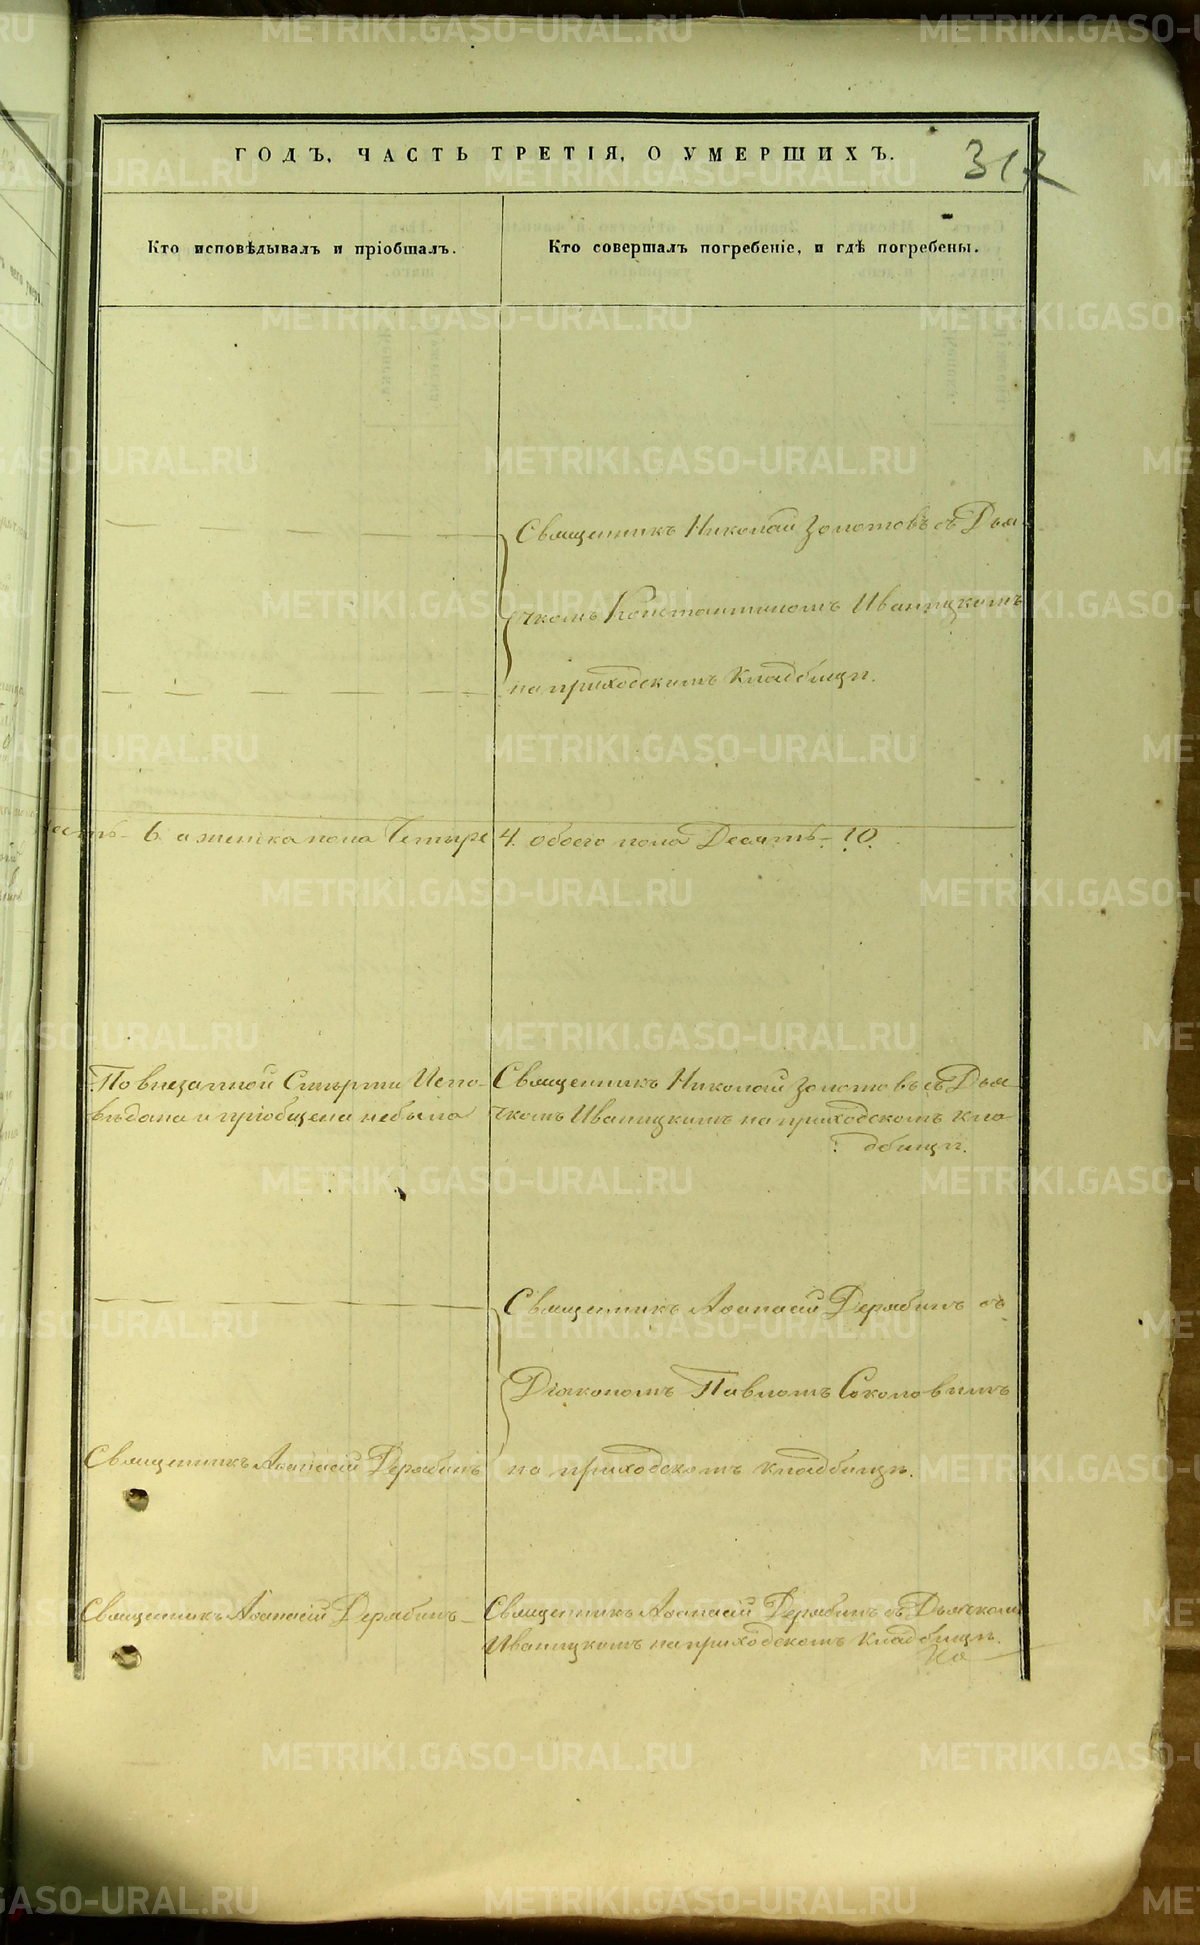 ГОДЪ, ЧАСТЬ ТРЕТІЯ, О УМЕРШИХЪ.
317
Кто исповѣдывалъ и пріобщалъ.
Кто совершалъ погребеніе, и гдѣ погребены.
Священникъ Николай Золотовъ съ Дья-
чкомъ Константиномъ Иваницкимъ
на приходскомъ кладбищѣ.
6. а женска пола Четыре 4. обоего пола Десять - 10.
По внезапной Смерти Испо-
вѣдана и пріобщена не была
Священникъ Николай Золотовъ съ Дья-
чкомъ Иваницкимъ на приходскомъ кла-
дбищѣ.
Священникъ Аѳанасій Дерябинъ съ
Діакономъ Павломъ Соколовымъ
на приходскомъ кладбищѣ.
Священникъ Аѳанасій Дерябинъ
Священникъ Аѳанасій Дерябинъ
Священникъ Аѳанасій Дерябинъ съ Дьячкомъ
Иваницкимъ на приходскомъ кладбищѣ.
METRIKI.GASO-URAL.RU